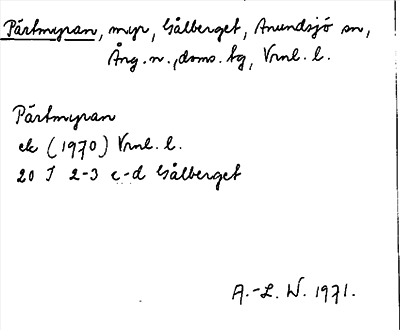 Pärtmyran, myr, Gålberget, Anundsjö sn,
Ång. n., doms. tg, Vrnl. l.
Pärtmyran
ek (1970) Vrnl. l.
20 I 2-3 c-d Gålberget
A.-L. W. 1971.